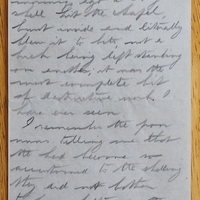 shell hit the chapel,
burst inside and literally
blew it to bits, not a
brick being left standing
on another, it was the
most complete bit
of destructive work I
have ever seen.
I remember the poor
nuns telling me that
they had become so
accustomed to the shelling
they did not bother